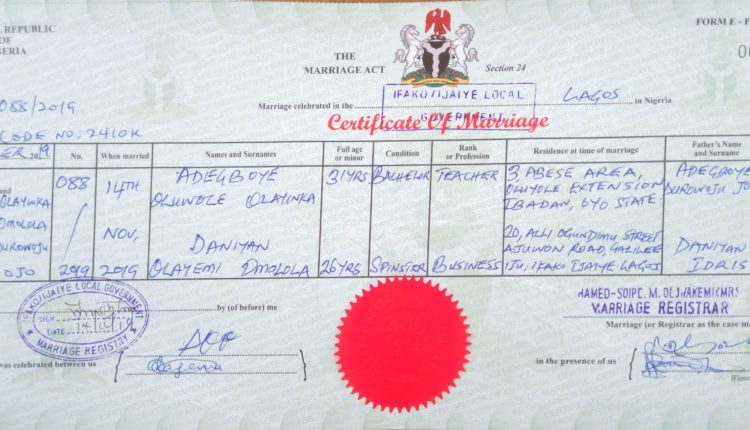 REPUBLIC
OF
FORM E - F
THE
MARRIAGE ACT
Section 24
088/2019
Marriage celebrated in the
IFAKO/IJAIYE LOCAL
GOVERNMENT
LAGOS
in Nigeria
CODE NO: 2410K
Certificate Of Marriage
2019
No.
When married
Names and Surnames
Full age
or minor
Condition
Rank
or Profession
Residence at time of marriage
Father's Name
and Surname
and
OLAYINKA
OMOLOLA
DUROWOJU
OJO
088
/
2019
14TH
NOV,
2019
ADEGBOYE
OLUWOLE OLAYINKA
DANIYAN
OLAYEMI OMOLOLA
31YRS
26YRS
BACHELOR
SPINSTER
TEACHER
BUSINESS
3, ABESE AREA,
OLUYOLE EXTENSION
IBADAN, OYO STATE.
20, ALLI OGUNDIMU STREET
AJUWON ROAD, GALILEE
IJU, IFAKO IJAIYE-LAGOS
ADEGBOYE
DUROWOJU
DANIYAN
IDRIS
IFAKO/IJAIYE LOCAL GOVERNMENT
SIGN
DATE
MARRIAGE REGISTRY
by (of before) me
MARRIAGE REGISTRAR
Marriage (or Registrar as the case m
was celebrated between us
in the presence of us
Witne